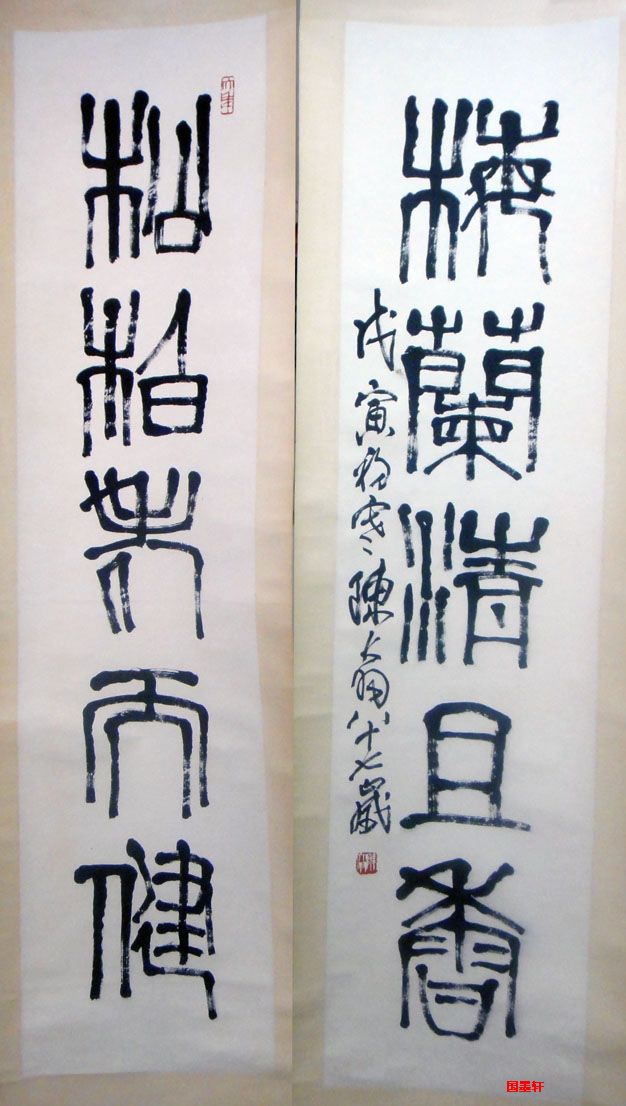 松柏老而健
梅蘭清且香
戊寅陳大羽八十七歲
国墨轩